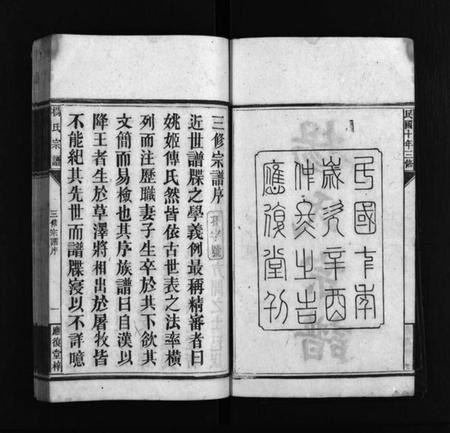 民國十年三修
民國十年
歲次辛酉
仲冬之吉
應復堂刊
三修宗譜序
近世譜牒之學義例最稱精審者曰
姚姬傳氏然皆依古世表之法率橫
列而注歷職妻子生卒於其下欲其
文簡而易檢也其序族譜曰自漢以
降王者生於草澤將相出於屠牧皆
不能紀其先世而譜牒寖以不詳噫
楊氏宗譜
三修宗譜序
一
應復堂梓